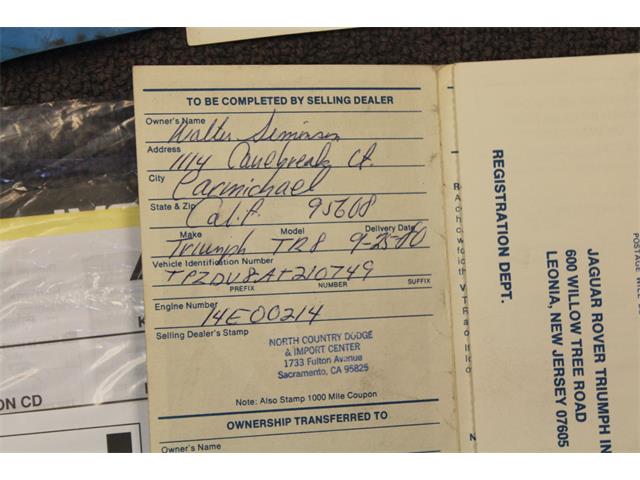 TO BE COMPLETED BY SELLING DEALER
Owner's Name
Walter Simonson
Address
1114 Canebreak Ct.
City
Carmichael
State & Zip
Calif. 95608
Make Model Delivery Date
Triumph TR8 9-25-80
Vehicle Identification Number
TPZDV8AT210749
PREFIX NUMBER SUFFIX
Engine Number
14E00214
Selling Dealer's Stamp
NORTH COUNTRY DODGE
& IMPORT CENTER
1733 Fulton Avenue
Sacramento, CA 95825
Note: Also Stamp 1000 Mile Coupon
OWNERSHIP TRANSFERRED TO
Owner's Name
REGISTRATION DEPT.
JAGUAR ROVER TRIUMPH IN
600 WILLOW TREE ROAD
LEONIA, NEW JERSEY 07605
ON CD